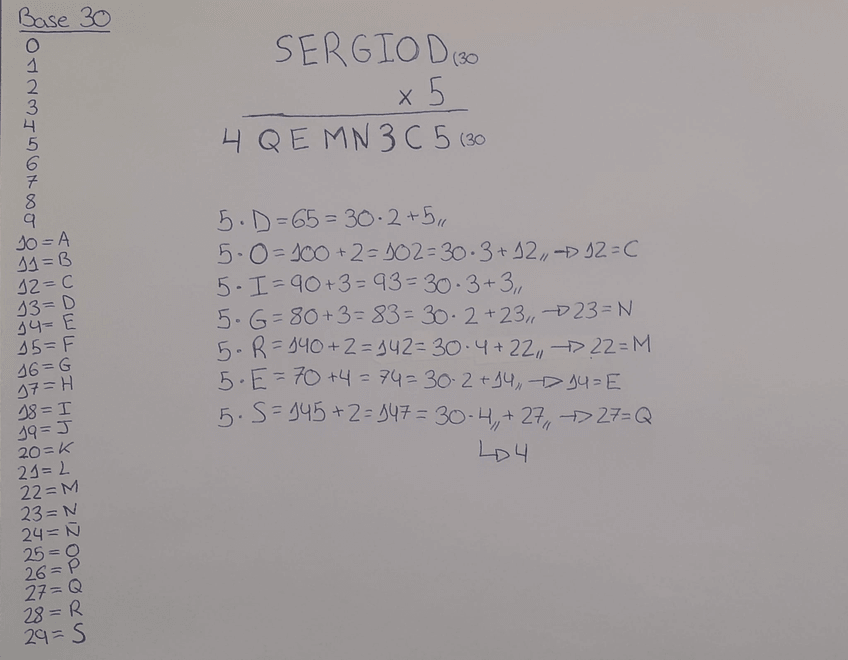 Base 30
0
1
2
3
4
5
6
7
8
9
10=A
11=B
12=C
13=D
14=E
15=F
16=G
17=H
18=I
19=J
20=K
21=L
22=M
23=N
24=Ñ
25=O
26=P
27=Q
28=R
29=S
SERGIOD(30
x 5
4QEMN3C5(30
5·D=65=30·2+5,,
5·O=100+2=102=30·3+12,,→12=C
5·I=90+3=93=30·3+3,,
5·G=80+3=83=30·2+23,,→23=N
5·R=140+2=142=30·4+22,,→22=M
5·E=70+4=74=30·2+14,,→14=E
5·S=145+2=147=30·4,,+27,,→27=Q
↳4